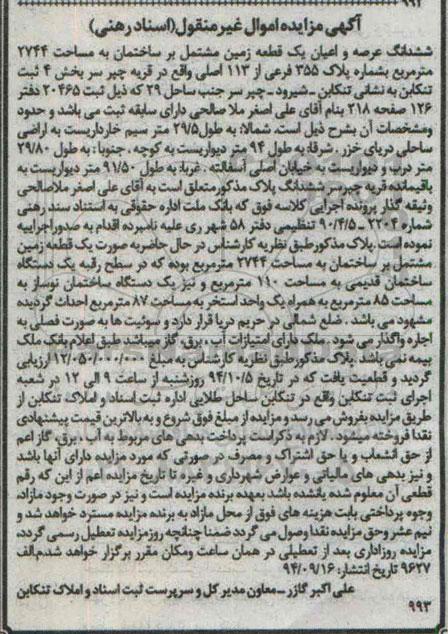 آگهی مزایده اموال غیر منقول(اسناد رهنی)
ششدانگ عرصه و اعیان یک قطعه زمین مشتمل بر ساختمان به مساحت ۲۷۴۴
مترمربع بشماره پلاک ۳۵۵ فرعی از ۱۱۳ اصلی واقع در قریه چپر سر بخش ۴ ثبت
تنکابن به نشانی تنکابن -شیرود -چپر سر جنب ساحل ۲۹ که ذیل ثبت ۲۰۴۶۵ دفتر
۱۲۶ صفحه ۲۱۸ بنام آقای علی اصغر ملا صالحی دارای سابقه ثبت می باشد و حدود
ومشخصات آن بشرح ذیل است. شمالا: به طول۲۹/۵ متر سیم خارداریست به اراضی
ساحلی دریای خزر . شرقا: به طول ۹۴ متر دیواریست به کوچه . جنوبا: به طول ۲۹/۸۰
متر درب و دیواریست به خیابان اصلی آسفالته . غربا: به طول ۹۱/۵۰ متر دیواریست به
باقیمانده قریه چپرسر ششدانگ پلاک مذکورمتعلق است به آقای علی اصغر ملاصالحی
وثیقه گذار پرونده اجرایی کلاسه فوق که بانک ملت اداره حقوقی به استناد سند رهنی
شماره ۲۲۰۴ - ۹۰/۴/۵ تنظیمی دفتر ۵۸ شهر ری علیه نامبرده اقدام به صدوراجراییه
نموده است .پلاک مذکورطبق نظریه کارشناس در حال حاضربه صورت یک قطعه زمین
مشتمل بر ساختمان به مساحت ۲۷۴۴ مترمربع بوده که در سطح رقبه یک دستگاه
ساختمان قدیمی به مساحت ۱۱۰ مترمربع و نیز یک دستگاه ساختمان نوساز به
مساحت ۸۵ مترمربع به همراه یک واحد استخر به مساحت ۸۷ مترمربع احداث گردیده
مشهود می باشد . ضلع شمالی در حریم دریا قرار دارد و سوئیت ها به صورت فصلی به
اجاره واگذار می شود . ملک دارای امتیازات آب ، برق، گاز میباشد طبق اعلام بانک ملک
بیمه نمی باشد .پلاک مذکورطبق نظریه کارشناس به مبلغ ۱۲/۰۵۰/۰۰۰/۰۰۰ ارزیابی
گردید و قطعیت یافت که در تاریخ ۹۴/۱۰/۵ روزشنبه از ساعت ۹ الی ۱۲ در شعبه
اجرای ثبت تنکابن واقع در تنکابن ساحل طلایی اداره ثبت اسناد و املاک تنکابن از
طریق مزایده بفروش می رسد و مزایده از مبلغ فوق شروع و به بالاترین قیمت پیشنهادی
نقدا فروخته میشود . لازم به ذکراست پرداخت بدهی های مربوط به آب ، برق، گاز اعم
از حق انشعاب و یا حق اشتراک و مصرف در صورتی که مورد مزایده دارای آنها باشد
و نیز بدهی های مالیاتی و عوارض شهرداری و غیره تا تاریخ مزایده اعم از این که رقم
قطعی آن معلوم شده یانشده باشد بعهده برنده مزایده است و نیز در صورت وجود مازاد،
وجوه پرداختی بابت هزینه های فوق از محل مازاد به برنده مزایده مسترد خواهد شد و
نیم عشر وحق مزایده نقدا وصول می گردد ضمنا چنانچه روزمزایده تعطیل رسمی گردد،
مزایده روزاداری بعد از تعطیلی در همان ساعت ومکان مقرر برگزار خواهد شد.م.الف
۹۶۲۷ تاریخ انتشار: ۹۴/۰۹/۱۶
علی اکبر گازر -معاون مدیر کل و سرپرست ثبت اسناد و املاک تنکابن
۹۹۳